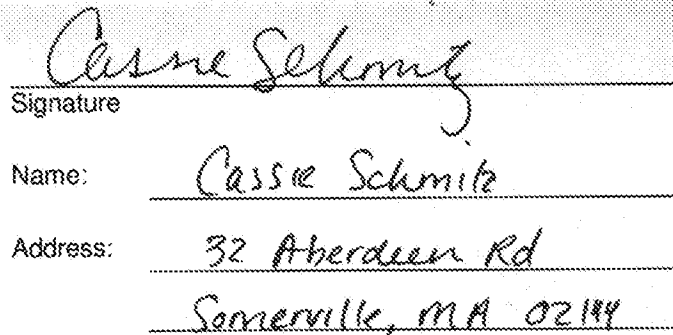 Cassie Schmitz
Signature
Name: Cassie Schmitz
Address: 32 Aberdeen Rd
Somerville, MA 02144